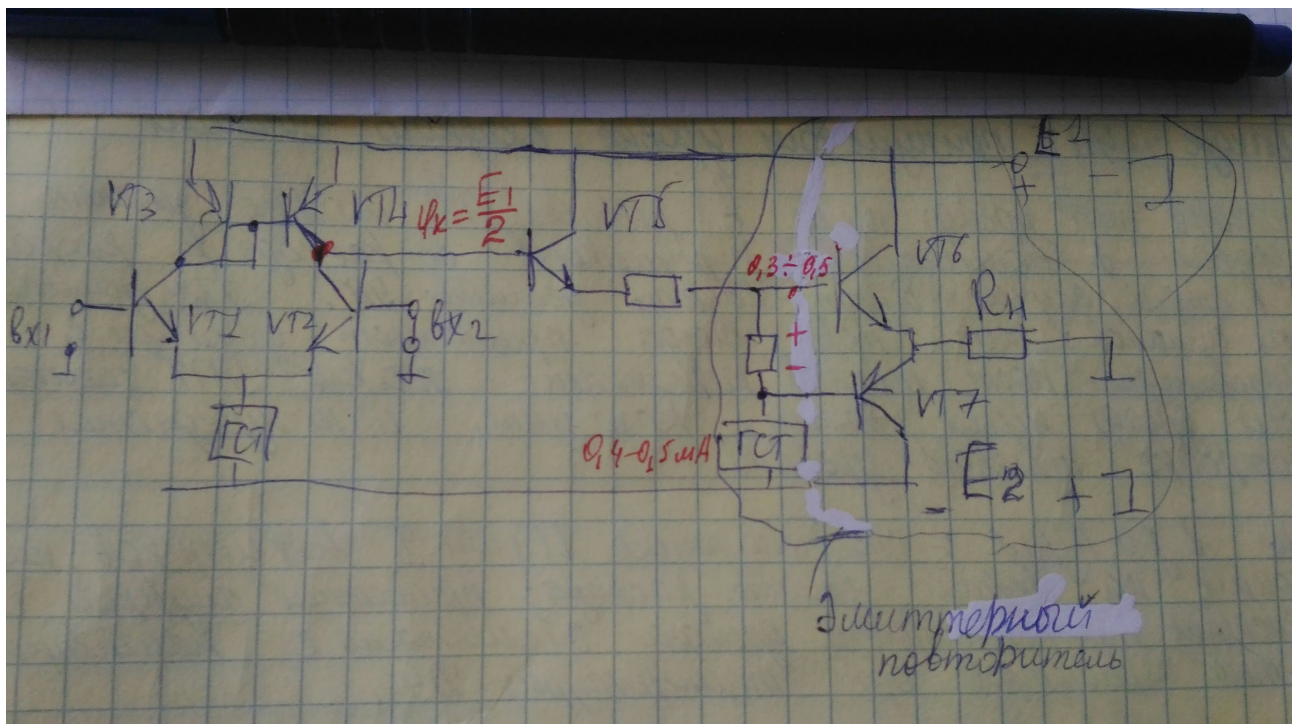 E1
+
-
VT3
VT4
φк = E1/2
VT5
0,3÷0,5
VT6
Rн
Вх1
VT1
VT2
Вх2
+
-
VT7
ГСТ
0,4-0,5мА
ГСТ
- E2 +
Эмиттерный
повторитель